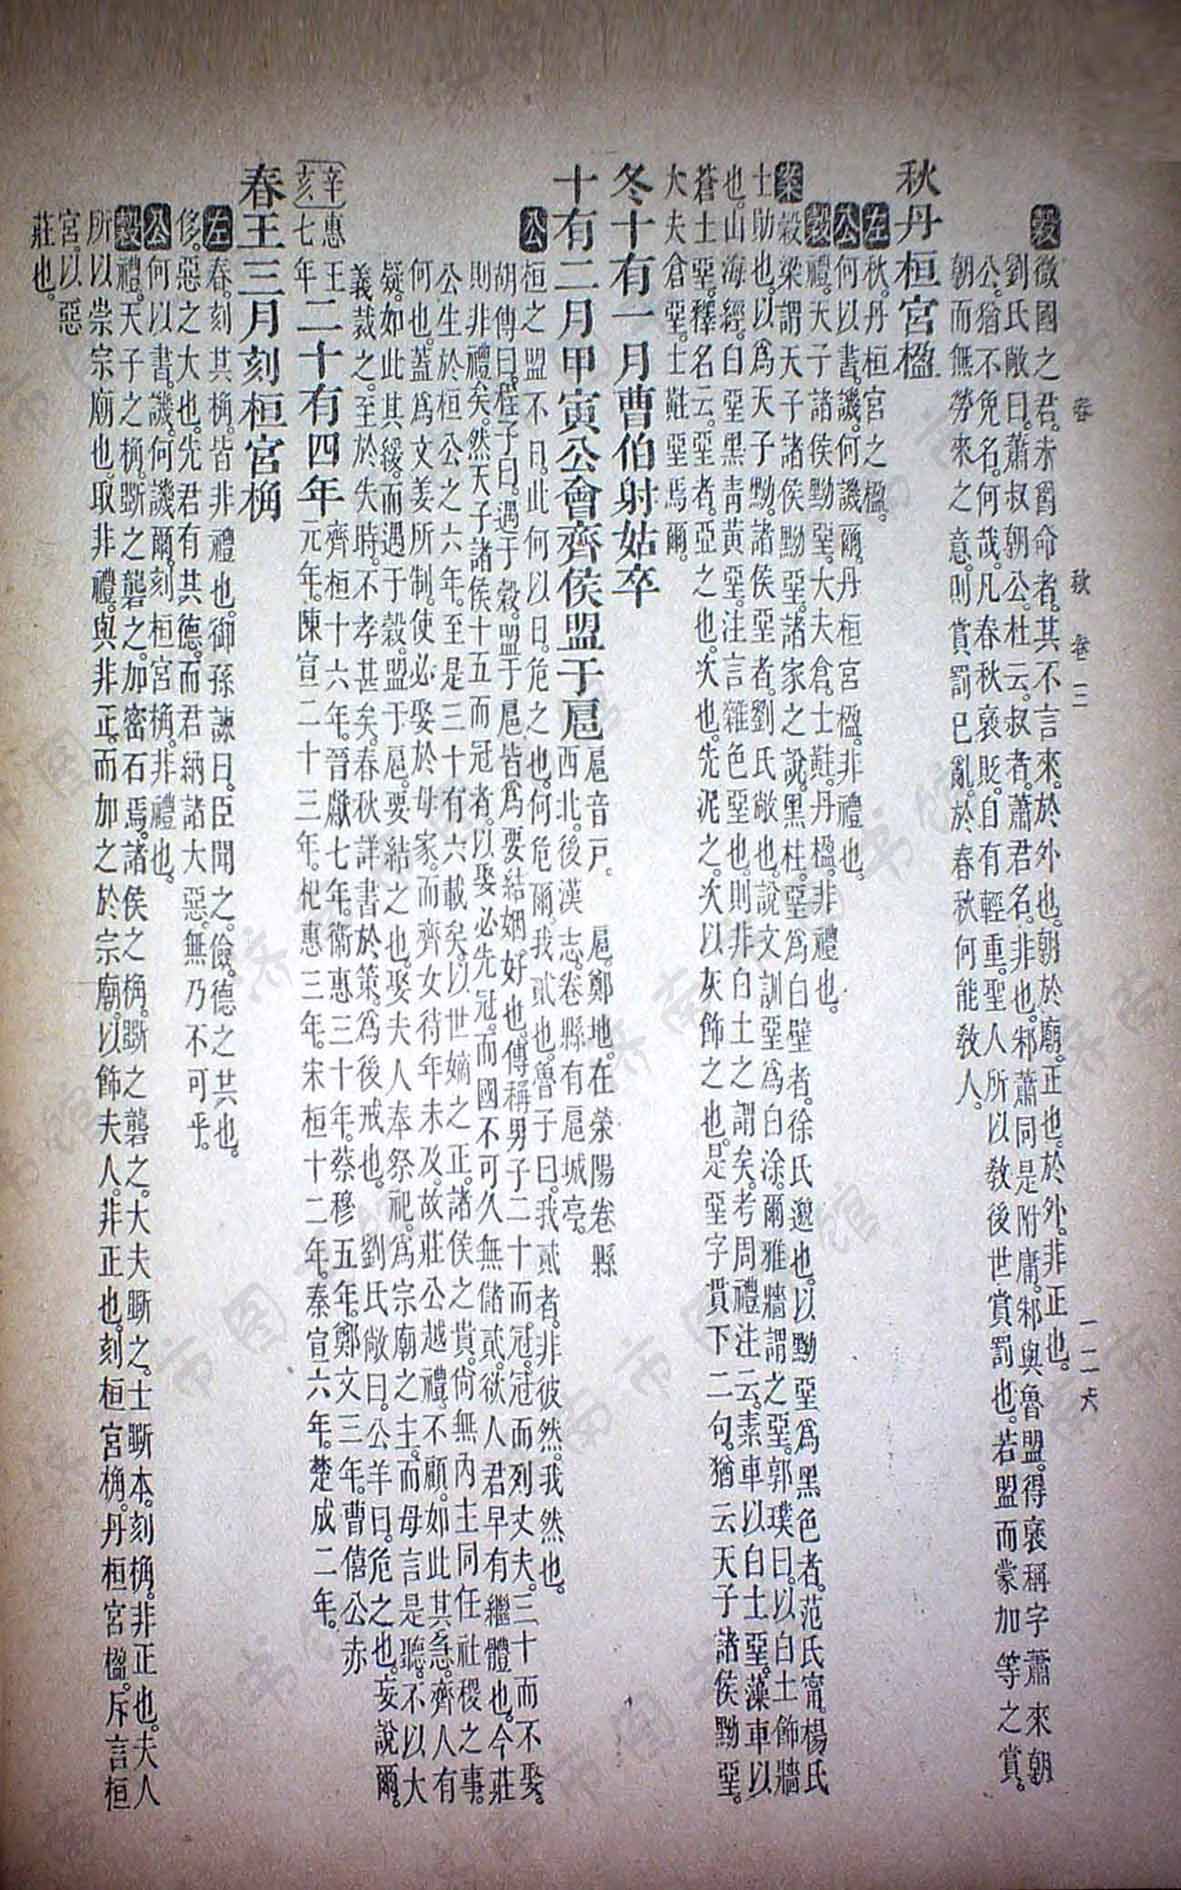 春　秋　卷三　一二六
穀微國之君。未爵命者。其不言來。於外也。朝於廟。正也。於外。非正也。
劉氏敞曰。蕭叔朝公。杜云。叔者。蕭君名。非也。邾蕭同是附庸。邾與魯盟。得褒稱字。蕭來朝
公。猶不免名。何哉。凡春秋褒貶。自有輕重。聖人所以教後世賞罰也。若盟而蒙加等之賞。
朝而無勞來之意。則賞罰已亂。於春秋何能教人。
秋丹桓宮楹
左秋。丹桓宮之楹。
公何以書。譏。何譏爾。丹桓宮楹。非禮也。
穀禮。天子諸侯黝堊。大夫倉。士黈。丹楹。非禮也。
案穀梁謂天子諸侯黝堊。諸家之說。黑柱。堊爲白壁者。徐氏邈也。以黝堊爲黑色者。范氏甯。楊氏
士助也。以爲天子黝。諸侯堊者。劉氏敞也。說文訓堊爲白涂。爾雅牆謂之堊。郭璞曰。以白土飾牆
也。山海經。白堊黑青黃堊。注言雜色堊也。則非白土之謂矣。考周禮注云。素車以白土堊。藻車以
蒼土堊。釋名云。堊者。亞之也。次也。先泥之。次以灰飾之也。是堊字貫下二句。猶云天子諸侯黝堊。
大夫倉堊。士黈堊焉爾。
冬十有一月曹伯射姑卒
十有二月甲寅公會齊侯盟于扈扈音戶。　扈。鄭地。在滎陽卷縣
西北。後漢志。卷縣有扈城亭。
公桓之盟不日。此何以日。危之也。何危爾。我貳也。魯子曰。我貳者。非彼然。我然也。
胡傳曰。程子曰。遇于穀。盟于扈。皆爲要結姻好也。傳稱男子二十而冠。冠而列丈夫。三十而不娶。
則非禮矣。然天子諸侯十五而冠者。以娶必先冠。而國不可久無儲貳。欲人君早有繼體也。今莊
公生於桓公之六年。至是三十有六載矣。以世嫡之正。諸侯之貴。尙無內主同任社稷之事。
何也。蓋爲文姜所制。使必娶於母家。而齊女待年未及。故莊公越禮。不顧如此其急。齊人有
疑。如此其緩。而遇于穀。盟于扈。要結之也。娶夫人奉祭祀。爲宗廟之主。而母言是聽。不以大
義裁之。至於失時。不孝甚矣。春秋詳書於策。爲後戒也。　劉氏敞曰。公羊曰。危之也。妄說爾。
辛亥惠王七年二十有四年齊桓十六年。晉獻七年。衛惠三十年。蔡穆五年。鄭文三年。曹僖公赤
元年。陳宣二十三年。杞惠三年。宋桓十二年。秦宣六年。楚成二年。
春王三月刻桓宮桷
左春。刻其桷。皆非禮也。御孫諫曰。臣聞之。儉。德之共也。
侈。惡之大也。先君有共德。而君納諸大惡。無乃不可乎。
公何以書。譏。何譏爾。刻桓宮桷。非禮也。
穀禮。天子之桷。斲之礱之。加密石焉。諸侯之桷。斲之礱之。大夫斲之。士斲本。刻桷。非正也。夫人
所以崇宗廟也。取非禮。與非正。而加之於宗廟。以飾夫人。非正也。刻桓宮桷。丹桓宮楹。斥言桓
宮。以惡
莊也。